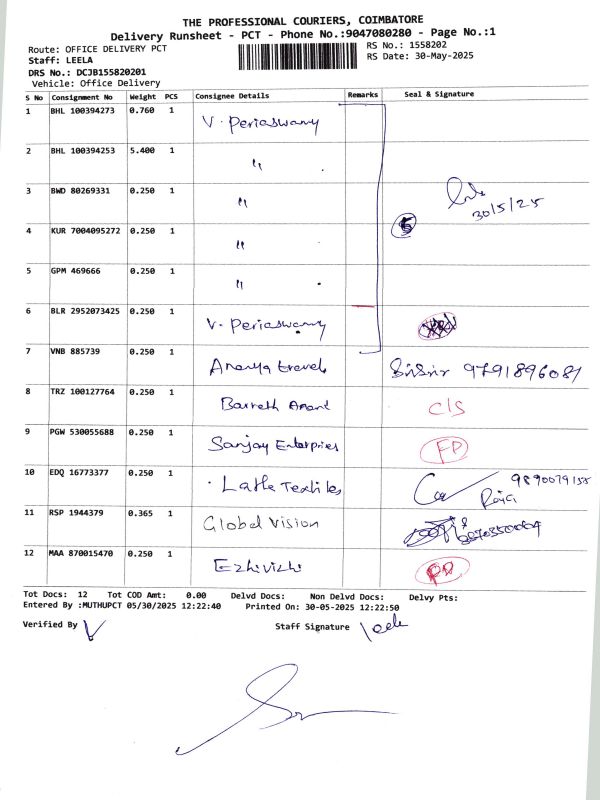 THE PROFESSIONAL COURIERS, COIMBATORE
Delivery Runsheet - PCT - Phone No.:9047080280 - Page No.:1
Route: OFFICE DELIVERY PCT
RS No.: 1558202
Staff: LEELA
RS Date: 30-May-2025
DRS No.: DCJB155820201
Vehicle: Office Delivery
S No Consignment No Weight PCS Consignee Details Remarks Seal & Signature
1 BHL 100394273 0.760 1 V. Periaswamy
2 BHL 100394253 5.400 1 "
3 BWD 80269331 0.250 1 " 30/5/25
4 KUR 7004095272 0.250 1 " 5
5 GPM 469666 0.250 1 "
6 BLR 2952073425 0.250 1 V. Periaswamy
7 VNB 885739 0.250 1 Ananya travels 9791896081
8 TRZ 100127764 0.250 1 Barrath Anand C/S
9 PGW 530055688 0.250 1 Sanjay Enterpries FD
10 EDQ 16773377 0.250 1 Textiles Raja
11 RSP 1944379 0.365 1 Global Vision
12 MAA 870015470 0.250 1 Ezhilvizhi
Tot Docs: 12 Tot COD Amt: 0.00 Delvd Docs: Non Delvd Docs: Delvy Pts:
Entered By :MUTHUPCT 05/30/2025 12:22:40 Printed On: 30-05-2025 12:22:50
Verified By Staff Signature leela